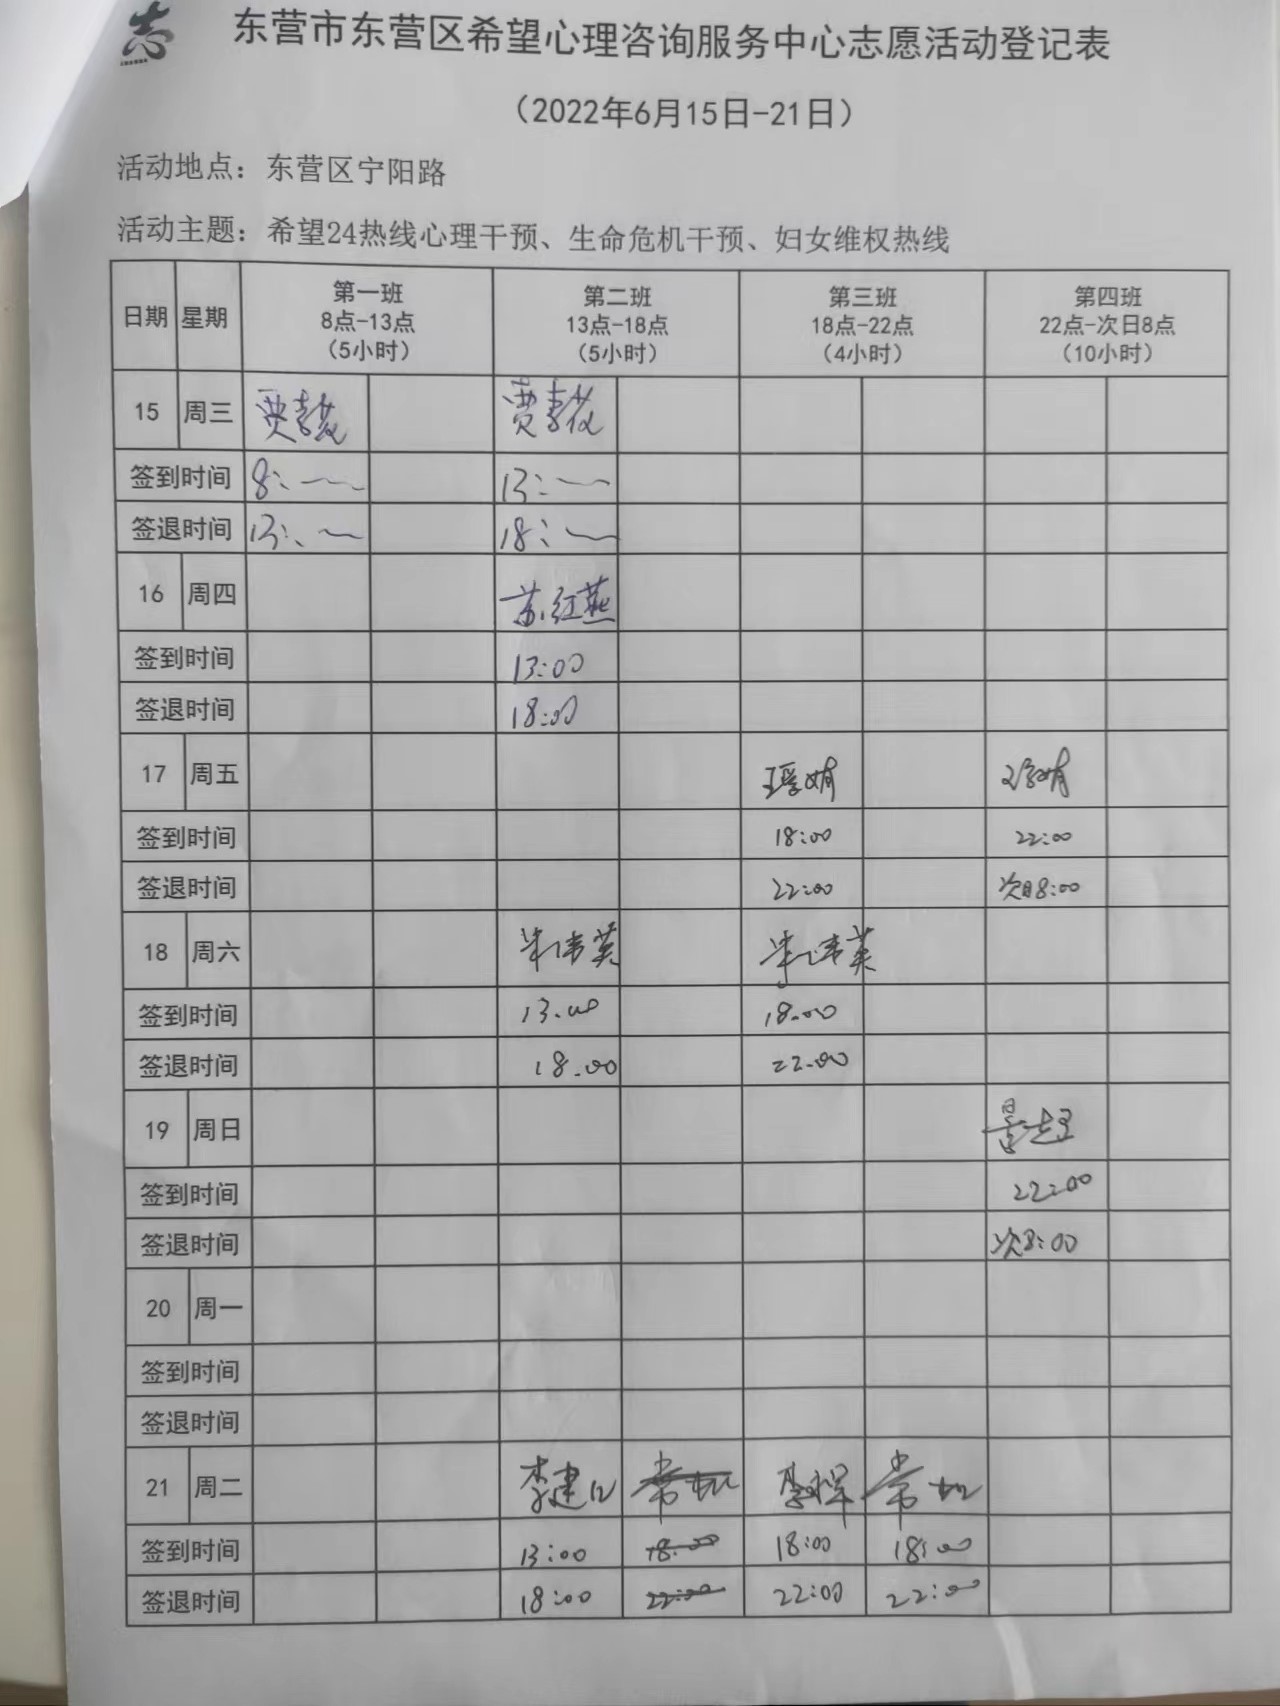 志
东营市东营区希望心理咨询服务中心志愿活动登记表
（2022年6月15日-21日）
活动地点：东营区宁阳路
活动主题：希望24热线心理干预、生命危机干预、妇女维权热线
日期 星期 第一班 8点-13点 （5小时） 第二班 13点-18点 （5小时） 第三班 18点-22点 （4小时） 第四班 22点-次日8点 （10小时）
15 周三
签到时间 8: 13:
签退时间 13: 18:
16 周四 苏红燕
签到时间 13:00
签退时间 18:00
17 周五
签到时间 18:00 22:00
签退时间 22:00 次日8:00
18 周六 朱伟英 朱伟英
签到时间 13.00 18.00
签退时间 18.00 22.00
19 周日
签到时间 22:00
签退时间 次8:00
20 周一
签到时间
签退时间
21 周二
签到时间 13:00 18:00 18:00 18:00
签退时间 18:00 22:00 22:00 22:00